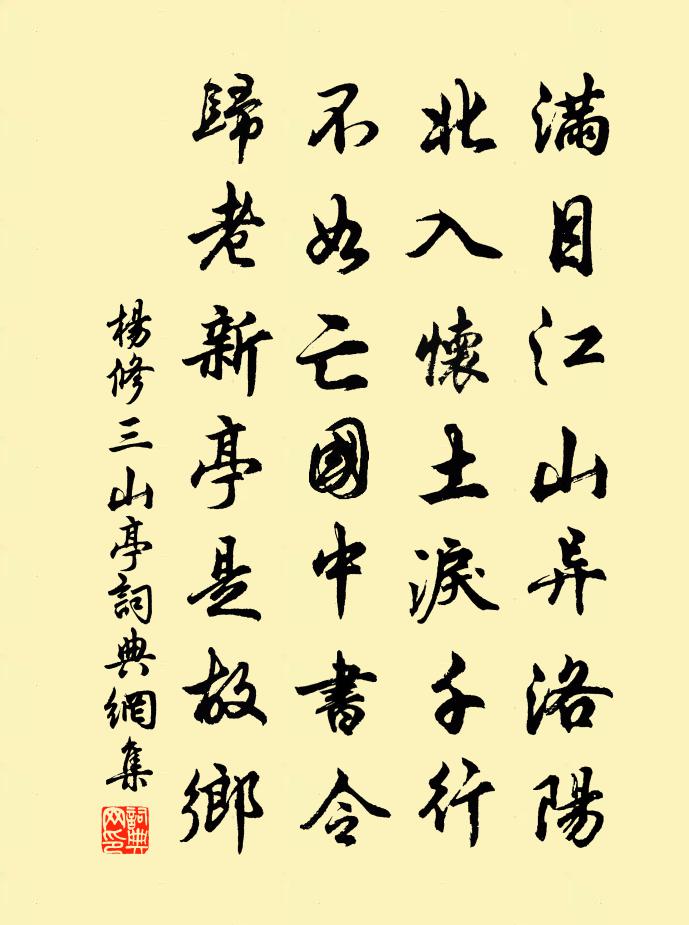 滿目江山异洛陽
北人懷土淚千行
不如亡國中書令
歸老新亭是故鄉
楊修三山亭詞典網集
詞典網印